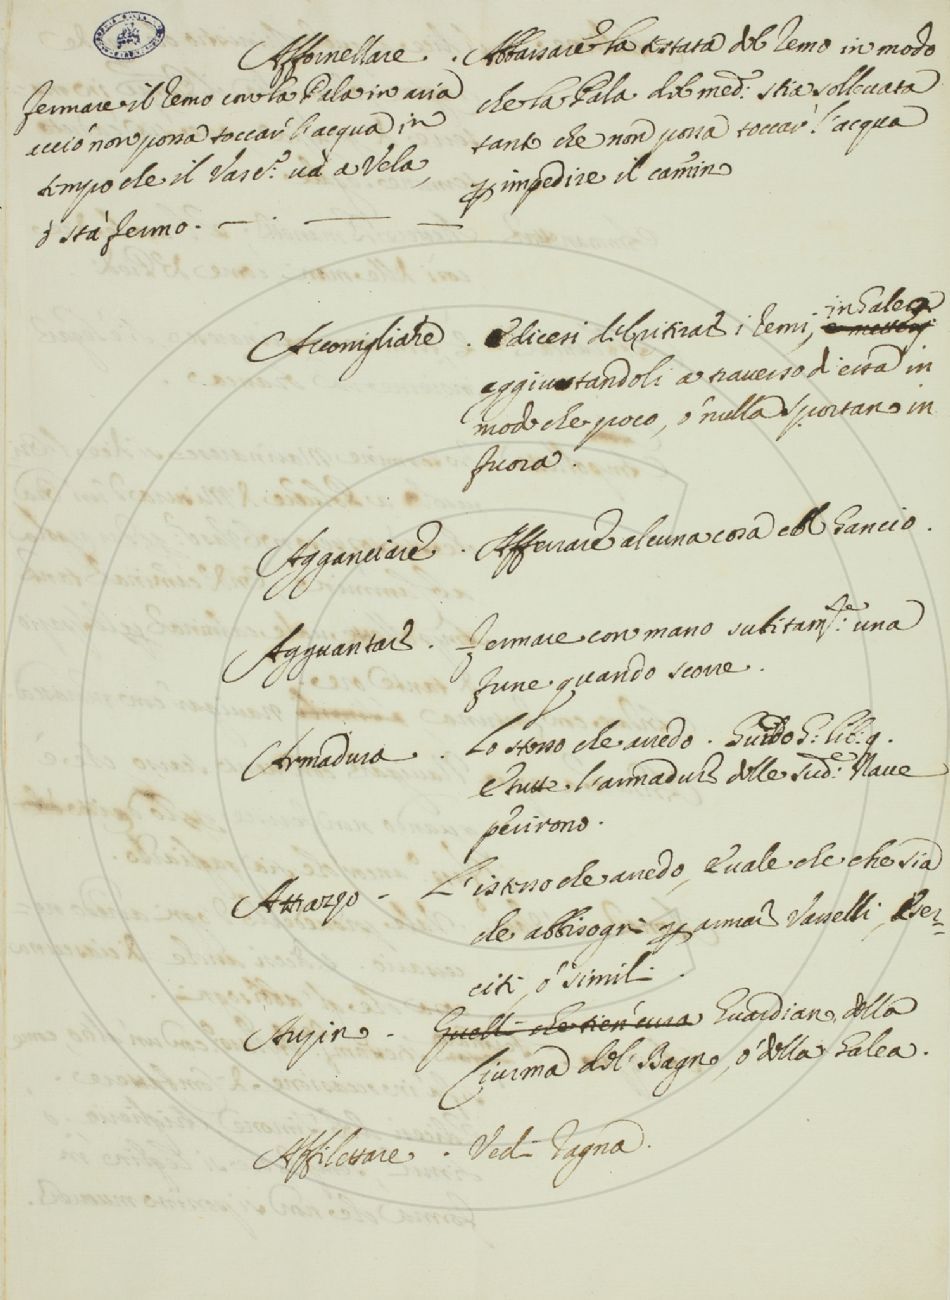 Affornellare . Abbassare la testata del remo in modo
che la Pala del med: stia sollevata
tanto che non possa toccar l'acqua
impedire il camin
fermare il remo con la Pala in aria
acciò non possa toccar l'acqua in
tempo che il Vasc: va a Vela,
ò stà fermo. — . — —
Acconigliare . dicesi del ritirar i remi, in Galera
e mettersi
aggiustandoli a traverso d'essa in
modo che poco, ò nulla sportano in
fuora .
Agganciare . Afferrare alcuna cosa col Gancio .
Agguantare . Fermare con mano subitam.te una
fune quando scorre .
Armadura . Lo stesso che arredo . Guido G: lib: 9.
E tutte l'armadure delle sud.e Nave
perirono .
Attrazzo - L'istesso che arredo, e vale che che sia
che abbisogni armar Vascelli, Eser=
citi, ò simili .
Auzin - Quelli che tien cura Guardian della
Ciurma del Bagno, ò della Galea .
Affilettare . Vedi Tagna .